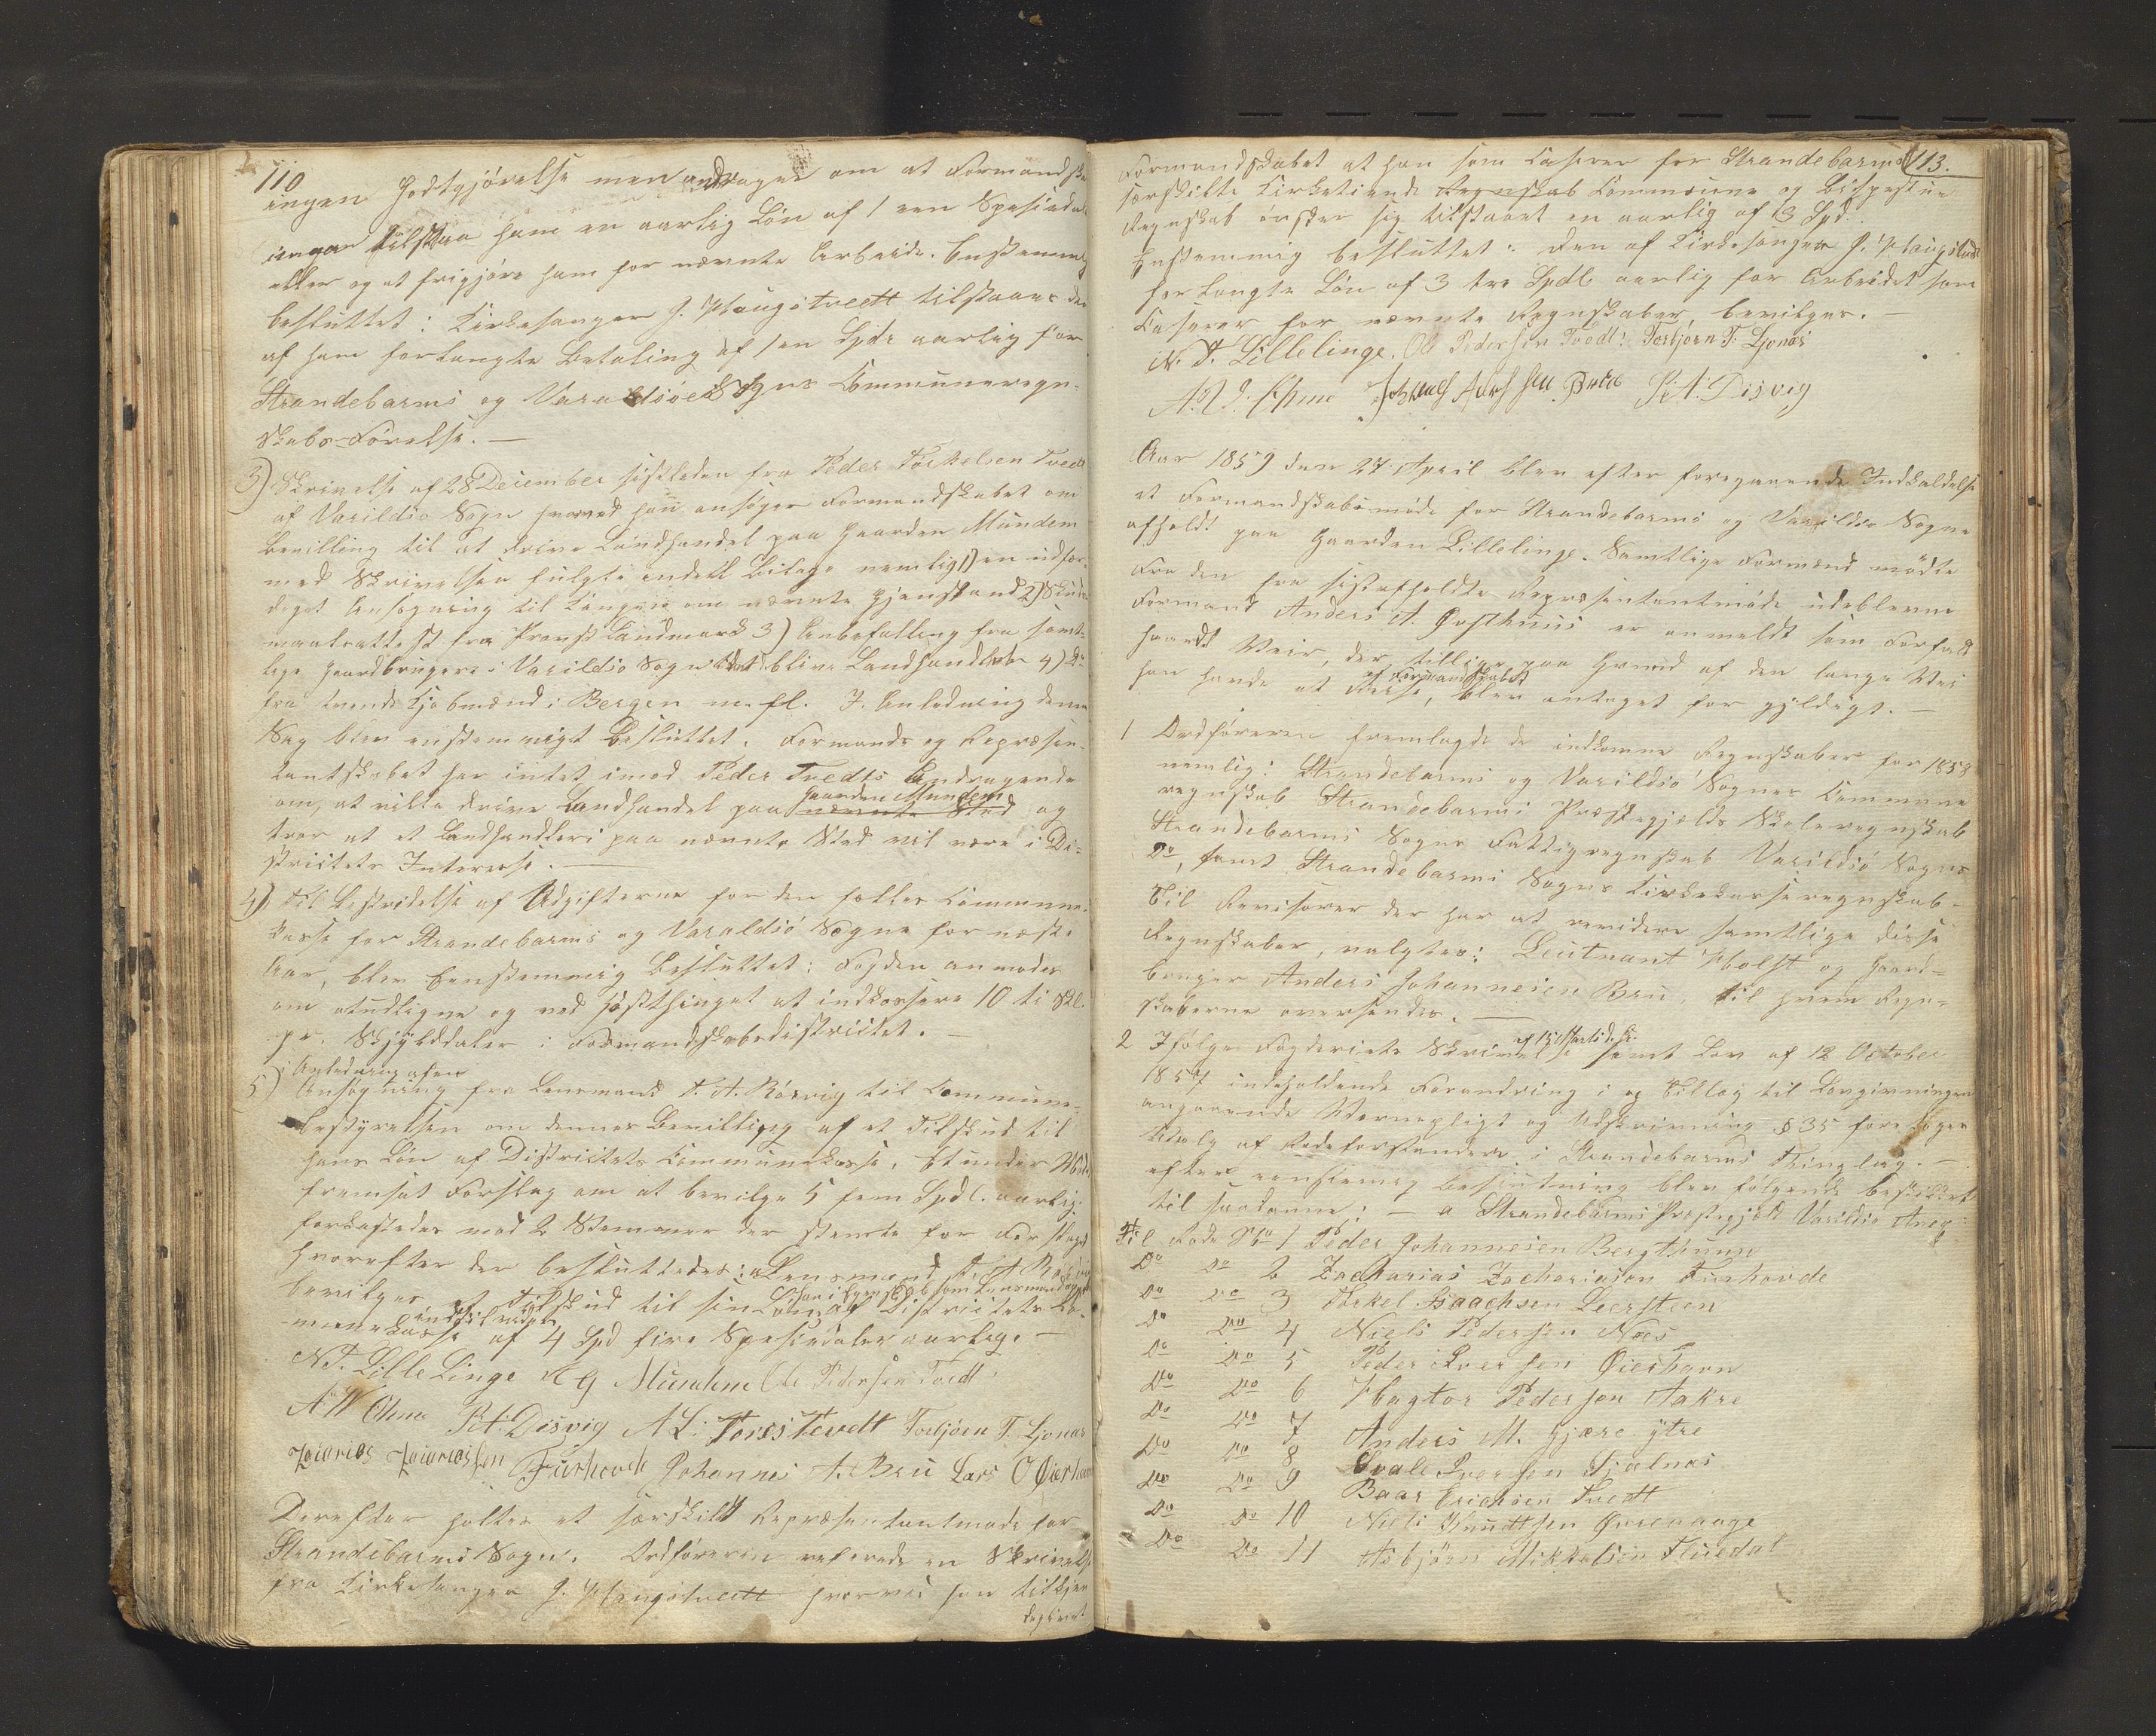 110
ingen Godtgjörelse men andrager om at Formandska
ingen tilstaa ham en aarlig Lön af 1 een Spesieda
eller og at frigjöre ham for nævnte Arbeide. Enstemmig
besluttet: Kirkesanger J. Haugstvedt tilstaaes den
af ham forlangte Betaling af 1 en Spdr aarlig for
Strandebarms og Varaldsöes Sogns Communeregn-
skabs-Förelse. —
3) Skrivelse af 28 December sistleden fra Peder Torkelsen Tvedt
af Varildsö Sogn hvorved han ansöger Formandskabet om
Bevilling til at drive Landhandel paa Gaarden Mundem
med Skrivelsen fulgte endeel Bilage nemlig 1) en udfær-
diget Ansögning til Kongen om nævnte Gjenstand 2) Skuds-
maalsattest fra Provst Landmark 3) Anbefalling fra samt-
lige Gaardbrugere i Varildsö Sogn til at blive Landhandler 4) Do
fra tvende Kjöbmænd i Bergen m. fl. I Anledning denne
Sag blev enstemmigt besluttet. Formands og Repræsen-
tantskabet har intet imod Peder Tvedts Andragende
om, at ville drive Landhandel paa nævnte Sted Gaarden Mundem og
tror at et Landhandleri paa nævnte Sted vil være i Di-
strictets Interesse. —
4) Til Bestridelse af Udgifterne for den fælles Commune-
kasse for Strandebarms og Varaldsö Sogne for næste
Aar, blev Eenstemmig besluttet: Fogden anmodes
om at udligne og ved Höstthinget at indkassere 10 ti Skl.
pr. Skjylddaler i Formandskabsdistrictet. —
i Anledning af en
5) Ansögning fra Lensmand T. A. Rörvig til Commune-
bestyrelsen om dennes Bevilling af et Tilskud til
hans Lön af Districtets Communekasse, et under Möde
fremsat Forslag om at bevilge 5 fem Spdl. aarlig
forkastedes mod 2 Stemmer der stemte for Forslaget
hvorefter der besluttedes: Lensmand T. A. Rörvig
han i Egenskab som Lensmand
bevilges et Tilskud til sin Lön af Districtets Co-
indtil videre
munekasse af 4 Spd fire Spesiedaler aarlige —
N. T. LilleLinge A G Mundem Ole Pedersen Tvedt
A W Ohna P. A: Disvig A L: Tores Tevedt Torbjörn T. Ljonæs
Zacarias Zacariassen Furhovde Johannes A. Bru Lars O Öierhavn
Derefter holtes et særskilt Repræsentantmöde for
Strandebarms Sogn. Ordföreren refererede en Skrivelse
fra Kirkesanger J. Haugstvedt hvorved han tilkjen-
degivet
113.
Formandskabet at han som Casserer for Strandebarms
særskilte Kirketiende Regnskab Commune og Bispestue
Regnskab önsker sig tilstaaet en aarlig af 3 Spd.
Enstemmig besluttet: Den af Kirkesanger J. Haugstvedt
forlangte Lön af 3 tre Spdl aarlig for Arbeidet som
Casserer for nævnte Regnskaber, bevilges. —
N. T. Lillelinge. Ole Pedersen Tvedt: Torbjörn T. Ljonæs
A. W. Ohna Johannes Andersen Bru P. A: Disvig
Aar 1859 den 27 April blev efter foregaaende Indkaldelse
et Formandskabsmöde for Strandebarms og Varildsö Sogne
afholdt paa Gaarden Lillelinge. Samtlige Formænd mödte
Fra den fra sistafholdte Repræsentantmöde udeblevne
Formand Anders A. Gofthuus er anmeldt som Forfald
haardt Veir, der tillige paa Grund af den lange Vei
af Formandskabet
han havde at reise, blev antaget for gyldigt. —
1 Ordföreren fremlagde de indkomne Regnskaber for 1858
nemlig: Strandebarms og Varildsö Sognes Commune
regnskab Strandebarms Præstegjælds Skoleregnskab
Strandebarms Sogns Fattigregnskab Varildsö Sogns
Do, samt Strandebarms Sogns Kirkekasseregnskab —
Til Revisorer der har at revidere samtlige disse
Regnskaber, valgtes: Leutnant Holst og Gaard-
bruger Anders Johannesen Bru, til hvem Regn-
skaberne oversendes. —
af 15 Marts d. A.
2 Ifölge Fogderiets Skrivelse samt Lov af 12 October
1857 indeholdende Forandring i og Tillæg til Lovgivningen
angaaende Vernepligt og Udskrivning § 35 foretoges
Valg af Rodeforstandere i Strandebarms Thinglag. —
efter eenstemig Beslutning blev fölgende beskikket
til saadanne: — a Strandebarms Præstegjeld Varildsö Anex:
Til Rode No 1 Peder Johannesen Bergthunn
Do Do 2 Zacharias Zachariasen Furhovde
Do Do 3 Torkel Isaachsen Leersteen
Do Do 4 Niels Pedersen Næs
Do Do 5 Peder Iversen Öierhavn
Do Do 6 Hagtor Pedersen Aakre
Do Do 7 Anders M. Gjære ytre
Do Do 8 Svale Iversen Tjælnæs
Do Do 9 Baar Erichsen Tvedt
Do Do 10 Niels Knudtsen Övrenaage
Do Do 11 Asbjörn Mikkelsen Fluedal